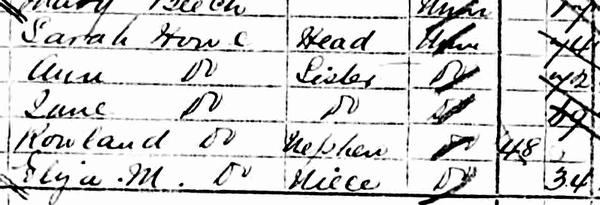 Mary Beech Unm
Sarah Howe Head Unm 74
Ann Do Sister Do 72
Jane Do Do Do 69
Rowland Do Nephew Do 48
Eliza M. Do Niece Do 34